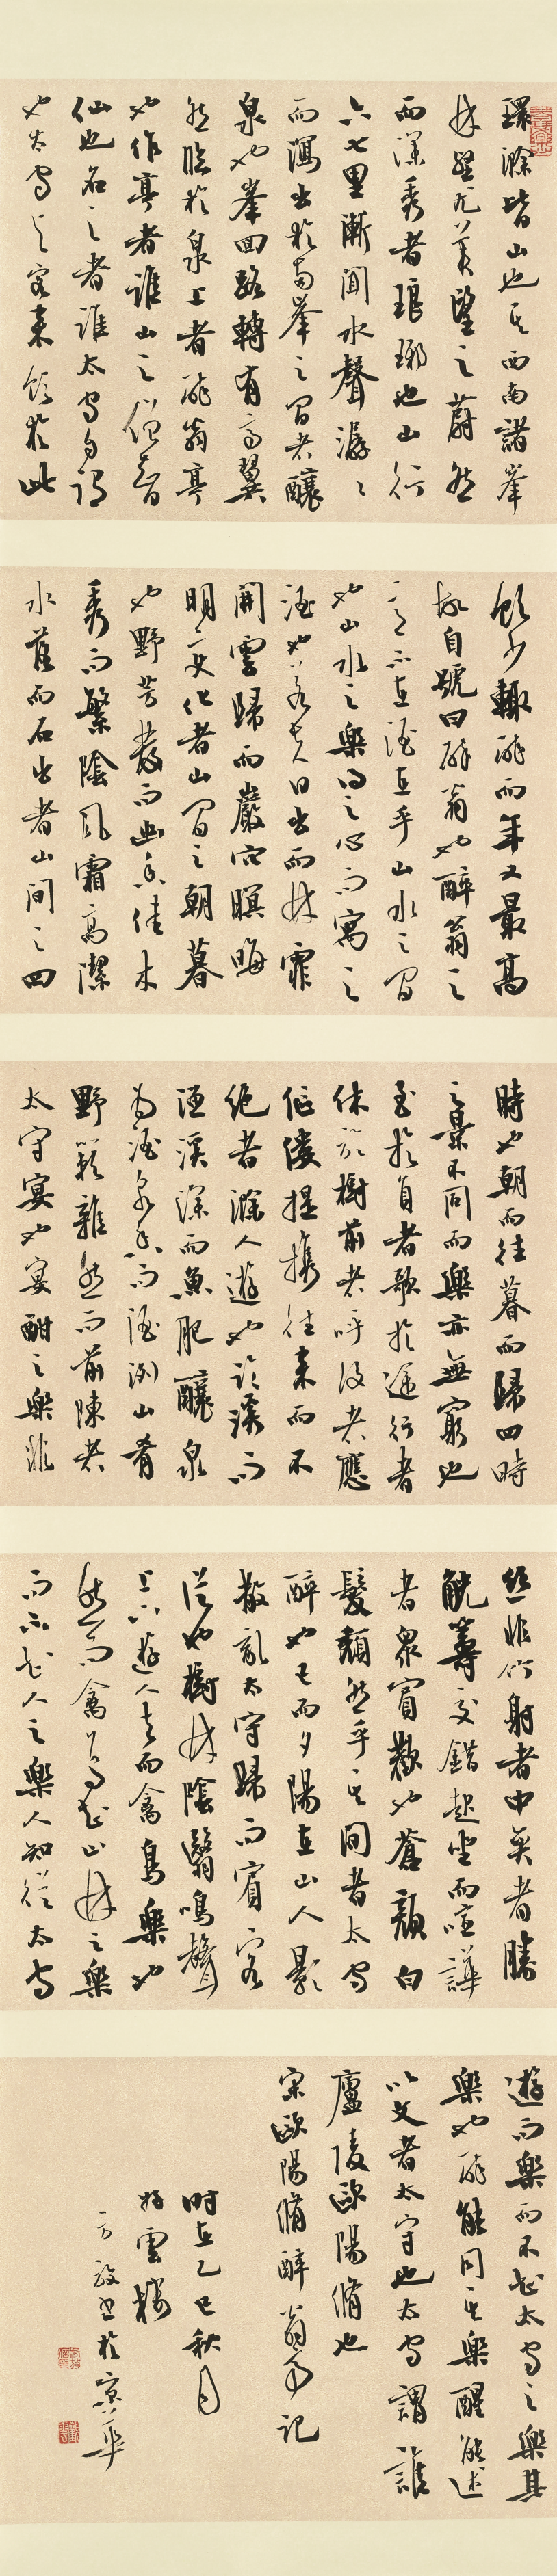 環滁皆山也其西南諸峯
林壑尤美望之蔚然
而深秀者琅琊也山行
六七里漸聞水聲潺〻
而瀉出於兩峯之間者釀
泉也峯回路轉有亭翼
然臨於泉上者醉翁亭
也作亭者誰山之僧智
仙也名之者誰太守自謂
也太守與客來飲於此
飲少輒醉而年又最高
故自號曰醉翁也醉翁之
意不在酒在乎山水之間
也山水之樂得之心而寓之
酒也若夫日出而林霏
開雲歸而巖穴暝晦
明變化者山間之朝暮
也野芳發而幽香佳木
秀而繁陰風霜高潔
水落而石出者山間之四
時也朝而往暮而歸四時
之景不同而樂亦無窮也
至於負者歌於途行者
休於樹前者呼後者應
傴僂提攜往來而不
絕者滁人遊也臨溪而
漁溪深而魚肥釀泉
為酒泉香而酒洌山肴
野蔌雜然而前陳者
太守宴也宴酣之樂非
絲非竹射者中弈者勝
觥籌交錯起坐而諠譁
者眾賓歡也蒼顏白
髮頹然乎其間者太守
醉也已而夕陽在山人影
散亂太守歸而賓客
從也樹林陰翳鳴聲
上下遊人去而禽鳥樂也
然而禽鳥知山林之樂
而不知人之樂人知從太守
遊而樂而不知太守之樂其
樂也醉能同其樂醒能述
以文者太守也太守謂誰
廬陵歐陽脩也
宋歐陽脩醉翁亭記
時在乙巳秋月
好雲樓
一方敬書於京華